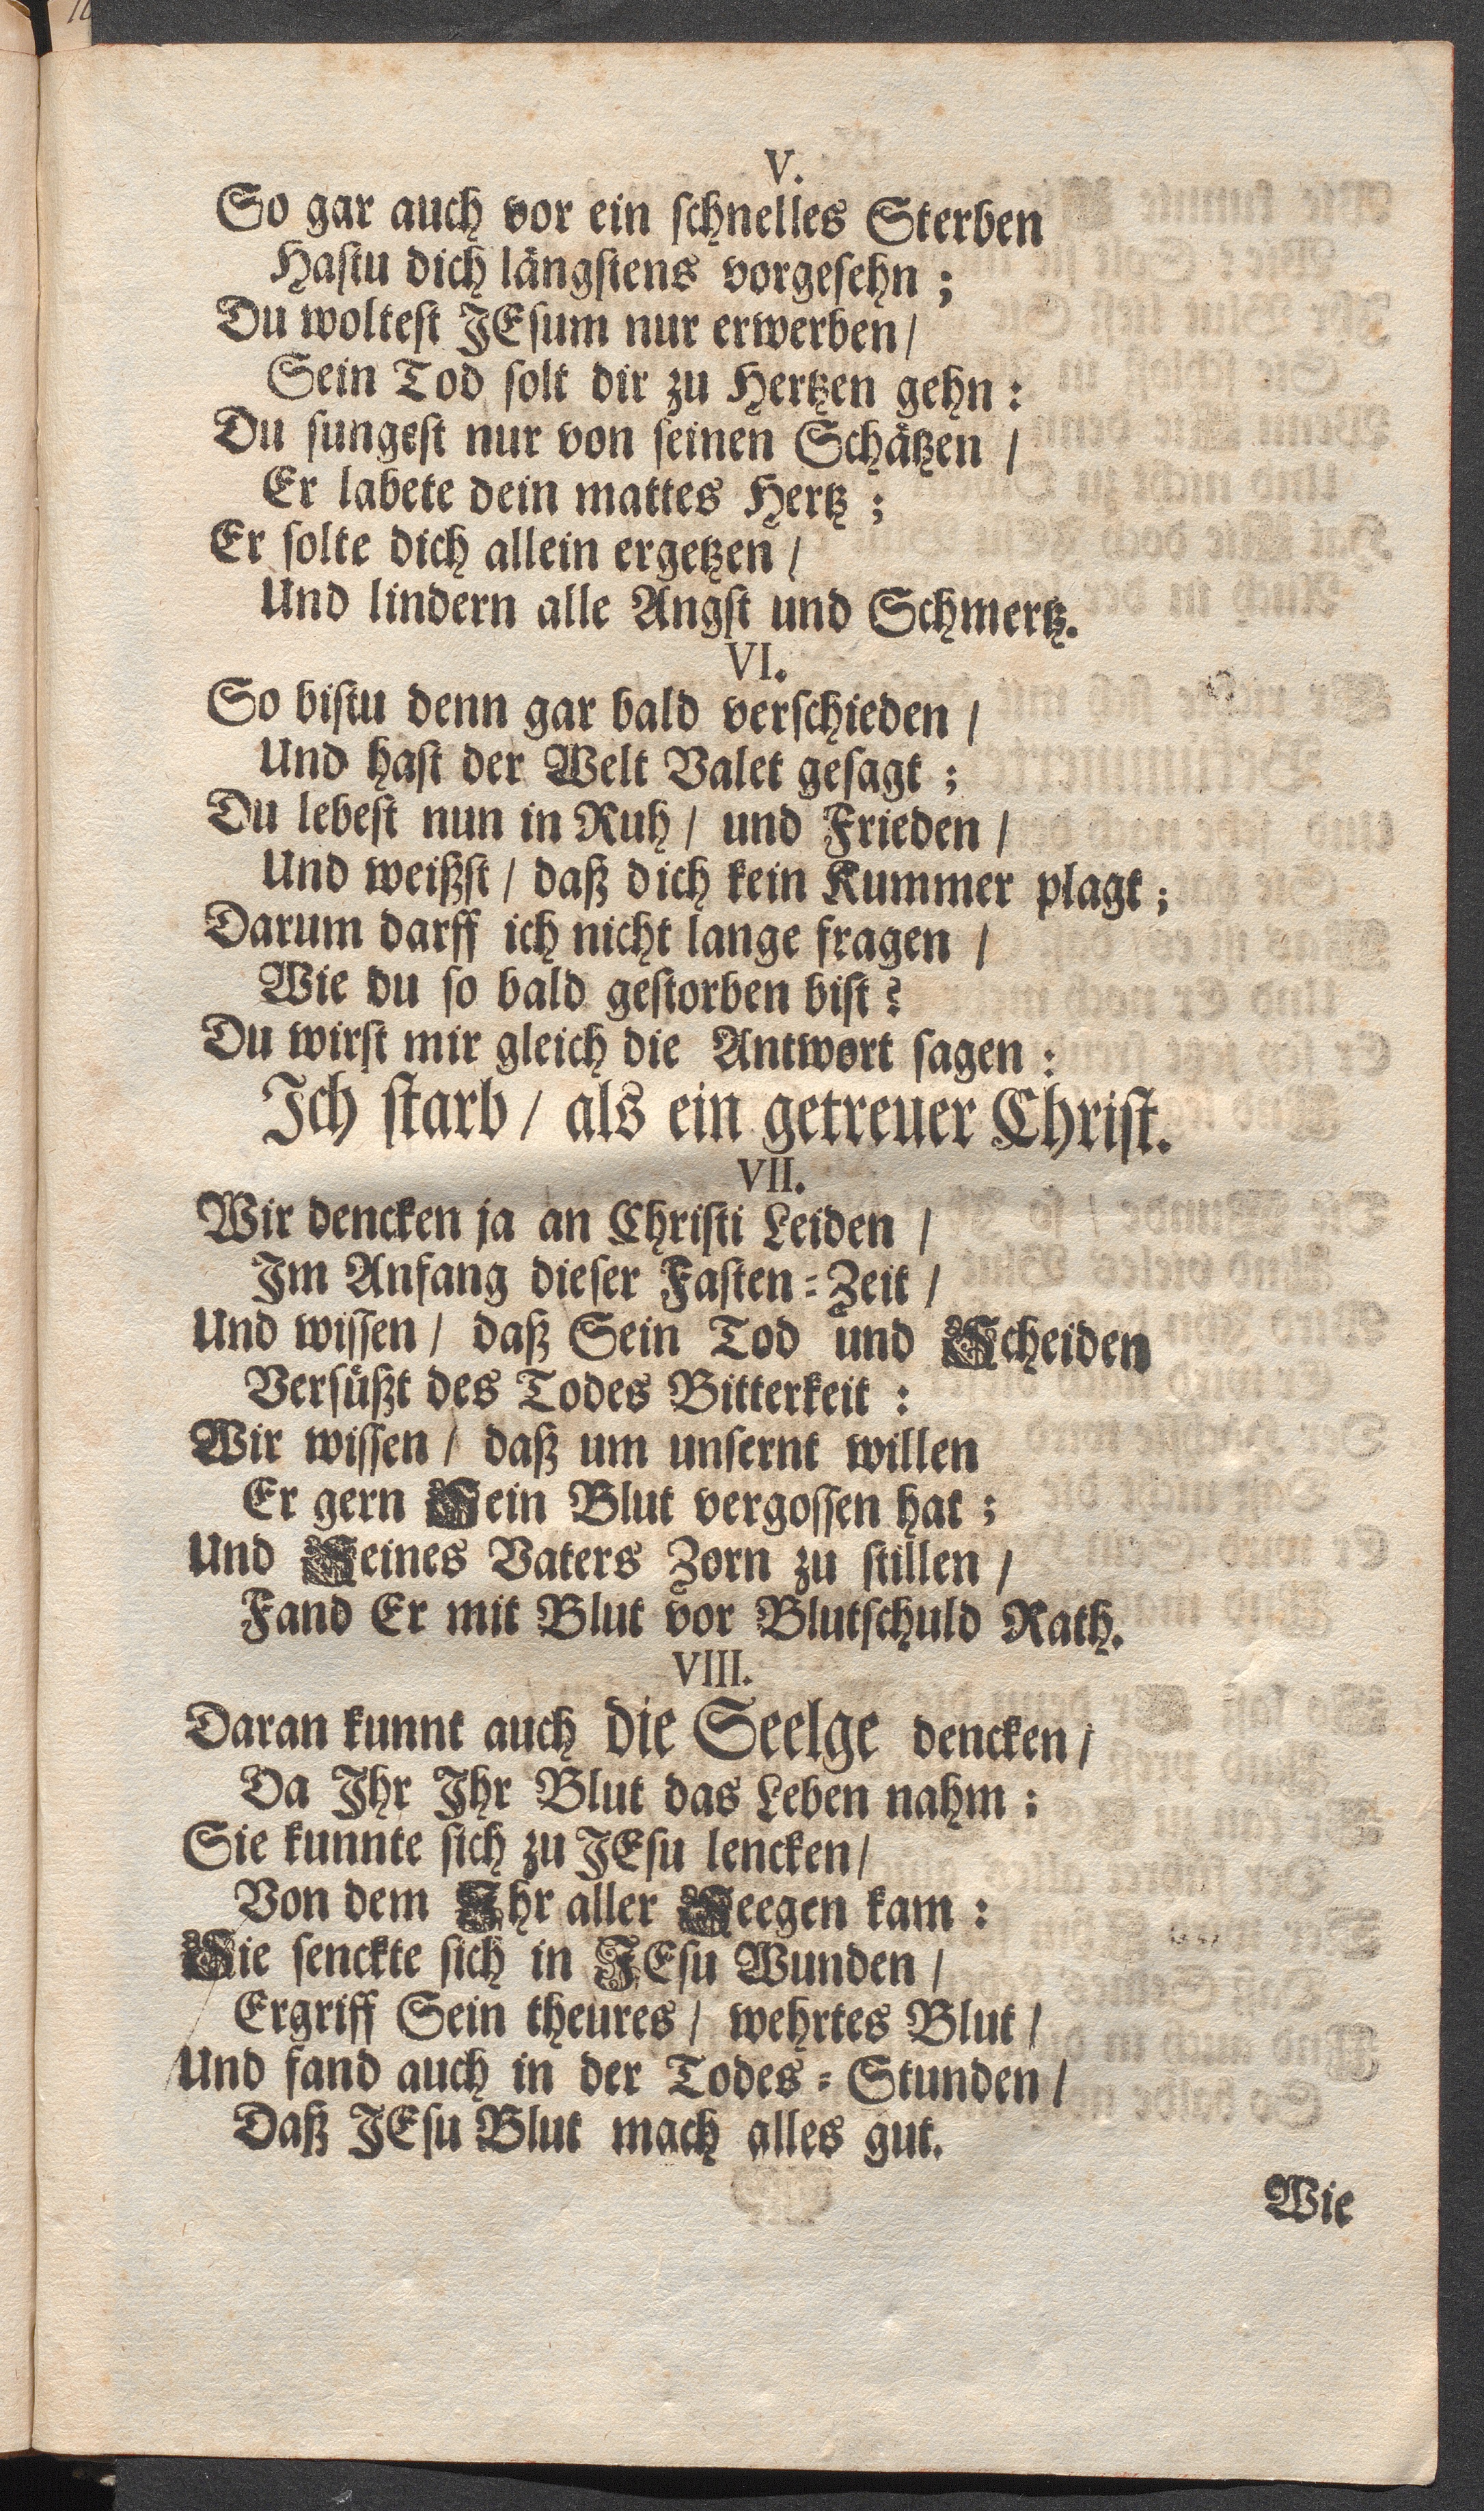 V.
So gar auch vor ein schnelles Sterben
Hastu dich längstens vorgesehn;
Du woltest JEsum nur erwerben/
Sein Tod solt dir zu Hertzen gehn:
Du sungest nur von seinen Schätzen /
Er labete dein mattes Hertz;
Er solte dich allein ergetzen /
Und lindern alle Angst und Schmertz.
VI.
So bistu denn gar bald verschieden /
Und hast der Welt Valet gesagt;
Du lebest nun in Ruh / und Frieden /
Und weißst / daß dich kein Kummer plagt;
Darum darff ich nicht lange fragen /
Wie du so bald gestorben bist?
Du wirst mir gleich die Antwort sagen:
Ich starb / als ein getreuer Christ.
VII.
Wir dencken ja an Christi Leiden /
Im Anfang dieser Fasten-Zeit /
Und wissen / daß Sein Tod und Scheiden
Versüßt des Todes Bitterkeit:
Wir wissen / daß um unsernt willen
Er gern Sein Blut vergossen hat;
Und Seines Vaters Zorn zu stillen /
Fand Er mit Blut vor Blutschuld Rath.
VIII.
Daran kunnt auch die Seelge dencken /
Da Ihr Ihr Blut das Leben nahm:
Sie kunnte sich zu JEsu lencken/
Von dem Ihr aller Seegen kam:
Sie senckte sich in JEsu Wunden /
Ergriff Sein theures / wehrtes Blut /
Und fand auch in der Todes-Stunden /
Daß JEsu Blut mach alles gut.
Wie